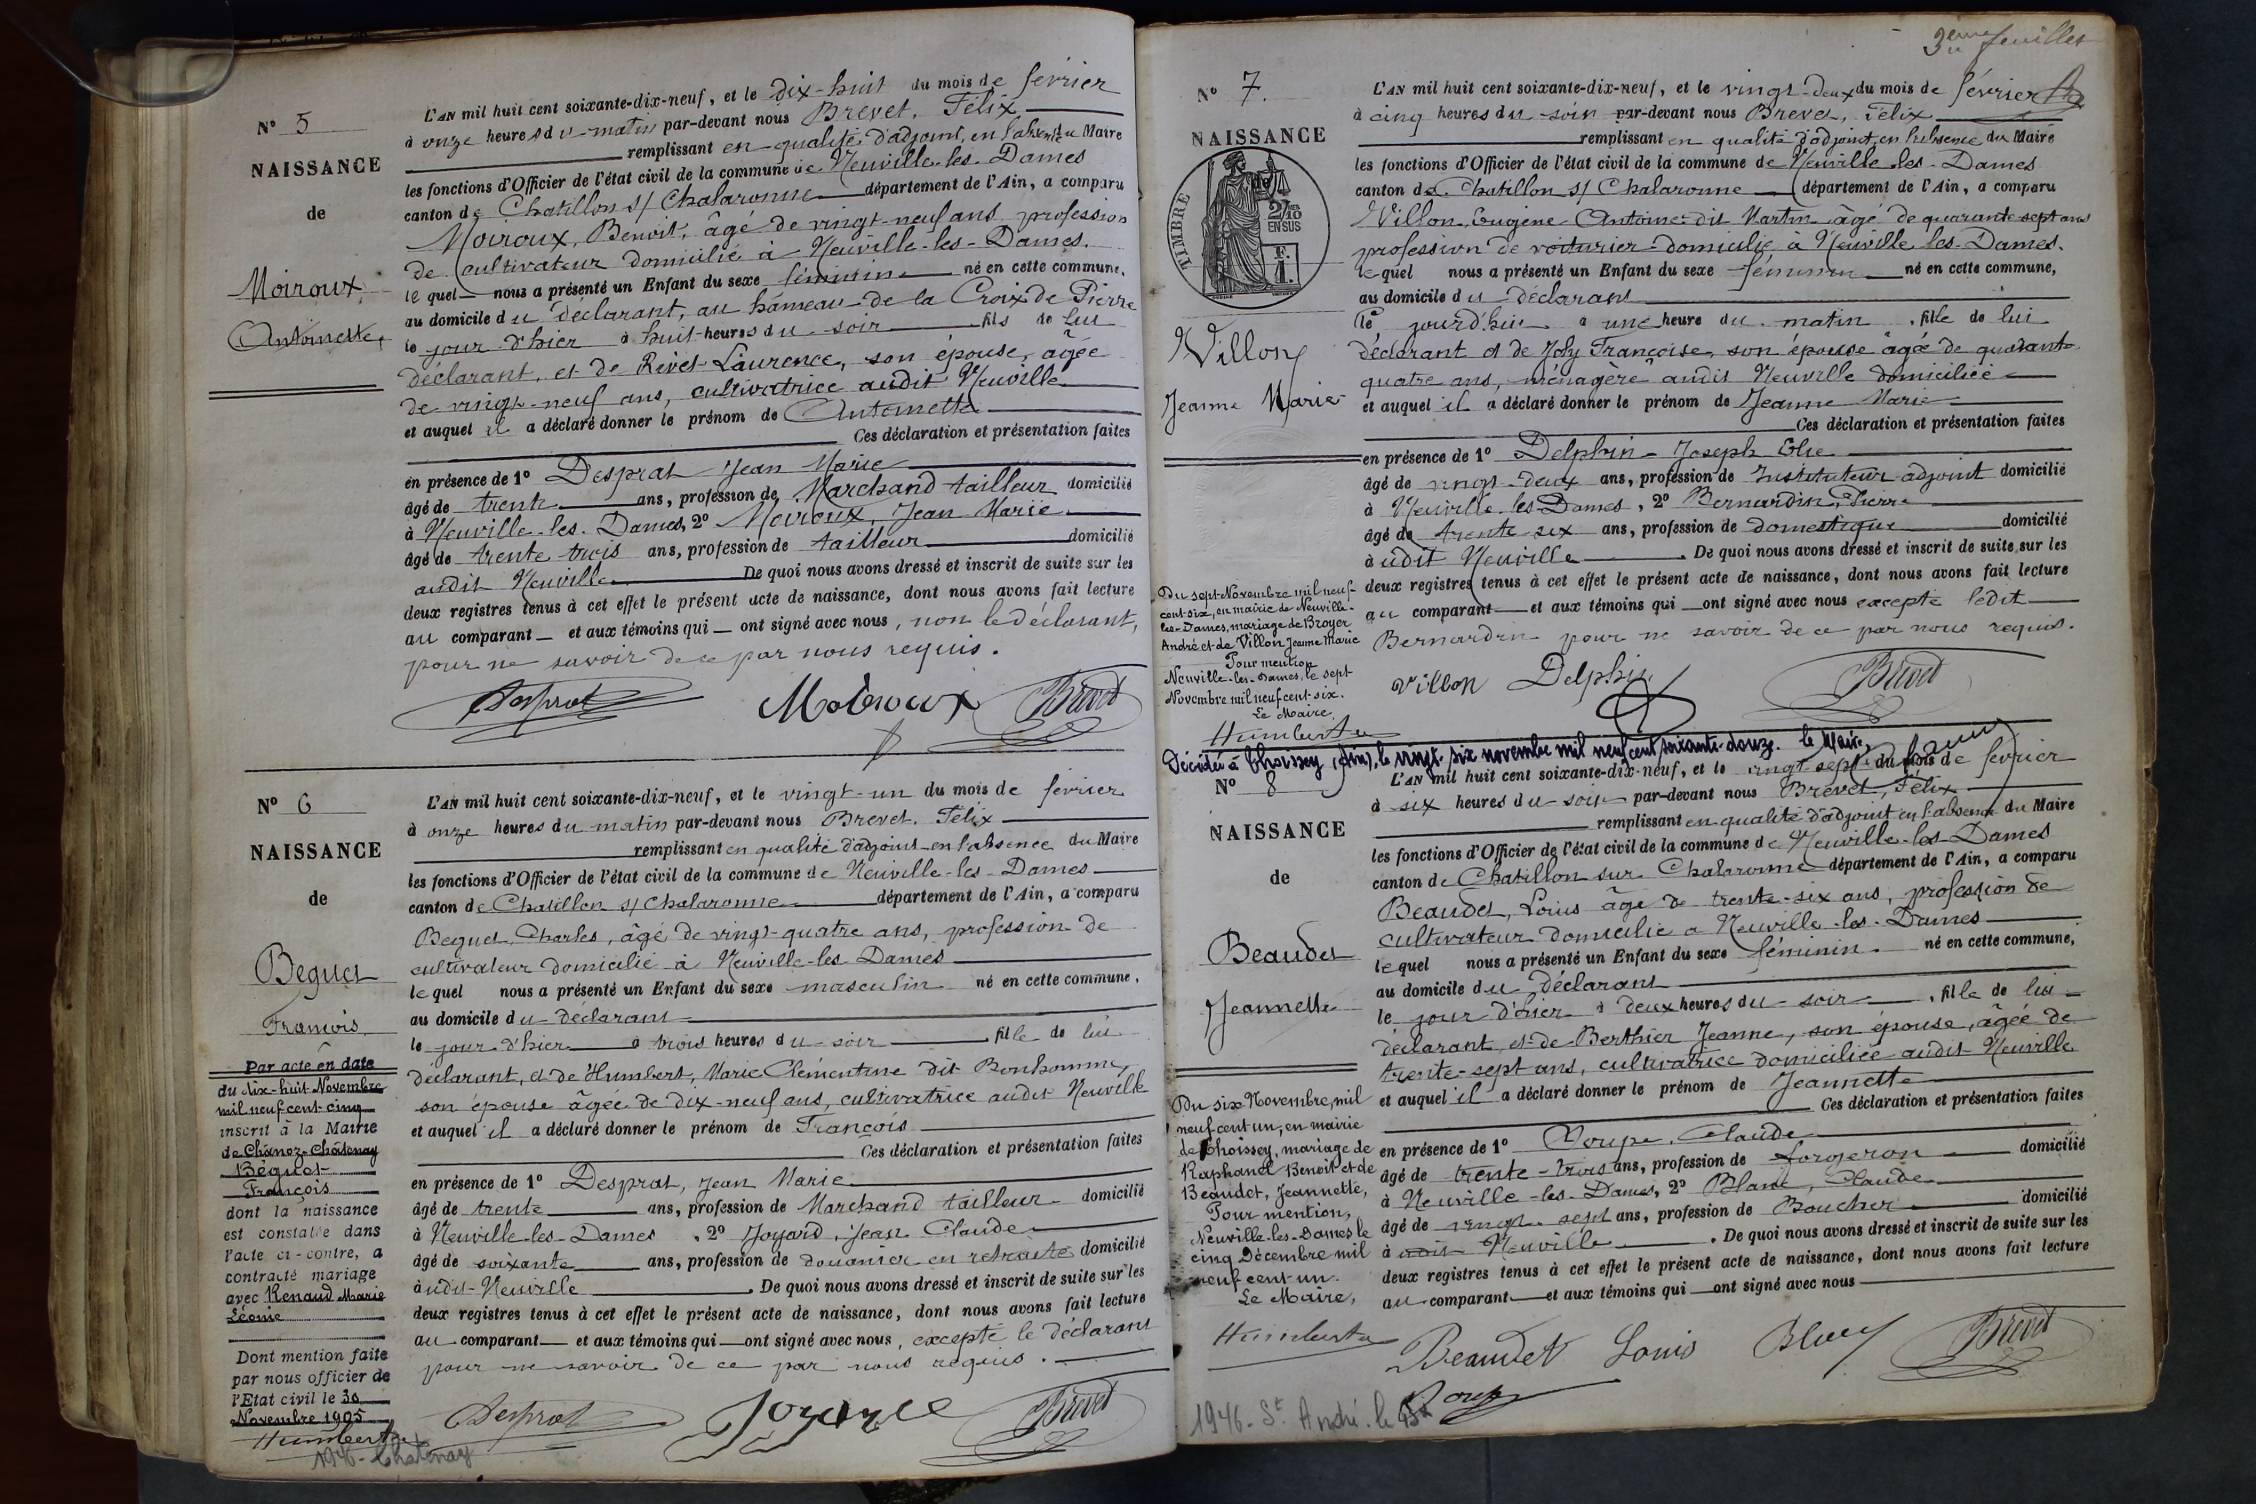 N° 5
NAISSANCE
de
Moiroux,
Antoinette,
L'AN mil huit cent soixante-dix-neuf, et le dix-huit du mois de février
à onze heures du matin par-devant nous Brevet, Félix
remplissant en qualité d'adjoint, en l'absence du Maire
les fonctions d'Officier de l'état civil de la commune de Neuville-les-Dames
canton de Chatillon s/ Chalaronne département de l'Ain, a comparu
Moiroux, Benoit, âgé de vingt-neuf ans profession
de cultivateur domicilié à Neuville-les-Dames.
lequel nous a présenté un Enfant du sexe féminin né en cette commune,
au domicile du déclarant, au hameau de la Croix de Pierre
le jour d'hier à huit heures du soir fils de lui
déclarant, et de Rivet Laurence, son épouse, âgée
de vingt-neuf ans, cultivatrice audit Neuville
et auquel il a déclaré donner le prénom de Antoinette
Ces déclaration et présentation faites
en présence de 1° Desprat Jean Marie
âgé de trente ans, profession de Marchand tailleur domicilié
à Neuville-les-Dames, 2° Moiroux, Jean Marie
âgé de trente trois ans, profession de tailleur domicilié
audit Neuville De quoi nous avons dressé et inscrit de suite sur les
deux registres tenus à cet effet le présent acte de naissance, dont nous avons fait lecture
au comparant et aux témoins qui ont signé avec nous, non le déclarant,
pour ne savoir de ce par nous requis.
Desprat Moiroux Brevet
N° 6
NAISSANCE
de
Beguet
François
Par acte en date
du dix-huit Novembre
mil neuf cent cinq
inscrit à la Mairie
de Chanoz-Châtenay
Béguet
François
dont la naissance
est constatée dans
l'acte ci-contre, a
contracté mariage
avec Renaud Marie
Léonie
Dont mention faite
par nous officier de
l'Etat civil le 30
Novembre 1905
Humbert
1946 - Chatenay
L'AN mil huit cent soixante-dix-neuf, et le vingt-un du mois de février
à onze heures du matin par-devant nous Brevet, Félix
remplissant en qualité d'adjoint en l'absence du Maire
les fonctions d'Officier de l'état civil de la commune de Neuville-les-Dames
canton de Chatillon s/ Chalaronne département de l'Ain, a comparu
Beguet, Charles, âgé de vingt-quatre ans, profession de
cultivateur domicilié à Neuville-les-Dames
lequel nous a présenté un Enfant du sexe masculin né en cette commune,
au domicile du déclarant
le jour d'hier à trois heures du soir fille de lui
déclarant, et de Humbert, Marie Clémentine dit Bonhomme,
son épouse âgée de dix-neuf ans, cultivatrice audit Neuville
et auquel il a déclaré donner le prénom de François
Ces déclaration et présentation faites
en présence de 1° Desprat, Jean Marie
âgé de trente ans, profession de Marchand tailleur domicilié
à Neuville-les-Dames, 2° Joyard, Jean Claude
âgé de soixante ans, profession de douanier en retraite domicilié
à udit Neuville De quoi nous avons dressé et inscrit de suite sur les
deux registres tenus à cet effet le présent acte de naissance, dont nous avons fait lecture
au comparant et aux témoins qui ont signé avec nous, excepté le déclarant
pour ne savoir de ce par nous requis.
Desprat Brevet
3ème feuillet
N° 7.
NAISSANCE
de
TIMBRE
2/10
EN SUS
F.
1.
Villon
Jeanne Marie
Du sept Novembre mil neuf-
cent-six, en mairie de Neuville-
les-Dames, mariage de Broyer
André et de Villon Jeanne Marie
Pour mention
Neuville-les-Dames, le sept
Novembre mil neuf cent-six.
Le Maire
Humbert
L'AN mil huit cent soixante-dix-neuf, et le vingt-deux du mois de février
à cinq heures du soir par-devant nous Brevet, Félix
remplissant en qualité d'adjoint en l'absence du Maire
les fonctions d'Officier de l'état civil de la commune de Neuville-les-Dames
canton de Chatillon s/ Chalaronne département de l'Ain, a comparu
Villon, Eugène Antoine dit Martin âgé de quarante-sept ans
profession de voiturier domicilié à Neuville les-Dames.
lequel nous a présenté un Enfant du sexe féminin né en cette commune,
au domicile du déclarant
le jourd'hui à une heure du matin, fille de lui
déclarant et de Joly Françoise, son épouse âgée de quarante
quatre ans, ménagère audit Neuville domiciliée
et auquel il a déclaré donner le prénom de Jeanne Marie
Ces déclaration et présentation faites
en présence de 1° Delphin Joseph Elie
âgé de vingt-deux ans, profession de Instituteur adjoint domicilié
à Neuville-les-Dames, 2° Bernardin, Pierre
âgé de trente six ans, profession de domestique domicilié
à udit Neuville. De quoi nous avons dressé et inscrit de suite sur les
deux registres tenus à cet effet le présent acte de naissance, dont nous avons fait lecture
au comparant et aux témoins qui ont signé avec nous excepté ledit
Bernardin pour ne savoir de ce par nous requis.
Villon Delphin Brevet
Décédée à Thoissey (Ain), le vingt-six novembre mil neuf cent soixante-douze. le Maire,
N° 8
NAISSANCE
de
Beaudet
Jeannette
Du six Novembre, mil
neuf cent un, en mairie
de Thoissey, mariage de
Raphanel Benoit et de
Beaudet, Jeannette,
Pour mention,
Neuville-les-Dames le
cinq Décembre mil
neuf cent un.
Le Maire,
Humbert
L'AN mil huit cent soixante-dix-neuf, et le vingt-sept du mois de février
à six heures du soir par-devant nous Brevet, Félix
remplissant en qualité d'adjoint en l'absence du Maire
les fonctions d'Officier de l'état civil de la commune de Neuville-les-Dames
canton de Chatillon sur Chalaronne département de l'Ain, a comparu
Beaudet, Louis âgé de trente-six ans, profession de
cultivateur domicilié à Neuville-les-Dames
lequel nous a présenté un Enfant du sexe féminin né en cette commune,
au domicile du déclarant
le jour d'hier à deux heures du soir, fille de lui
déclarant et de Berthier Jeanne, son épouse, âgée de
trente-sept ans, cultivatrice domiciliée audit Neuville
et auquel il a déclaré donner le prénom de Jeannette
Ces déclaration et présentation faites
en présence de 1° Claude
âgé de trente-trois ans, profession de forgeron domicilié
à Neuville-les-Dames, 2° Blanc, Claude
âgé de vingt-sept ans, profession de Boucher domicilié
à udit Neuville. De quoi nous avons dressé et inscrit de suite sur les
deux registres tenus à cet effet le présent acte de naissance, dont nous avons fait lecture
au comparant et aux témoins qui ont signé avec nous
Beaudet Louis Blanc Brevet
1946 - St André-le-